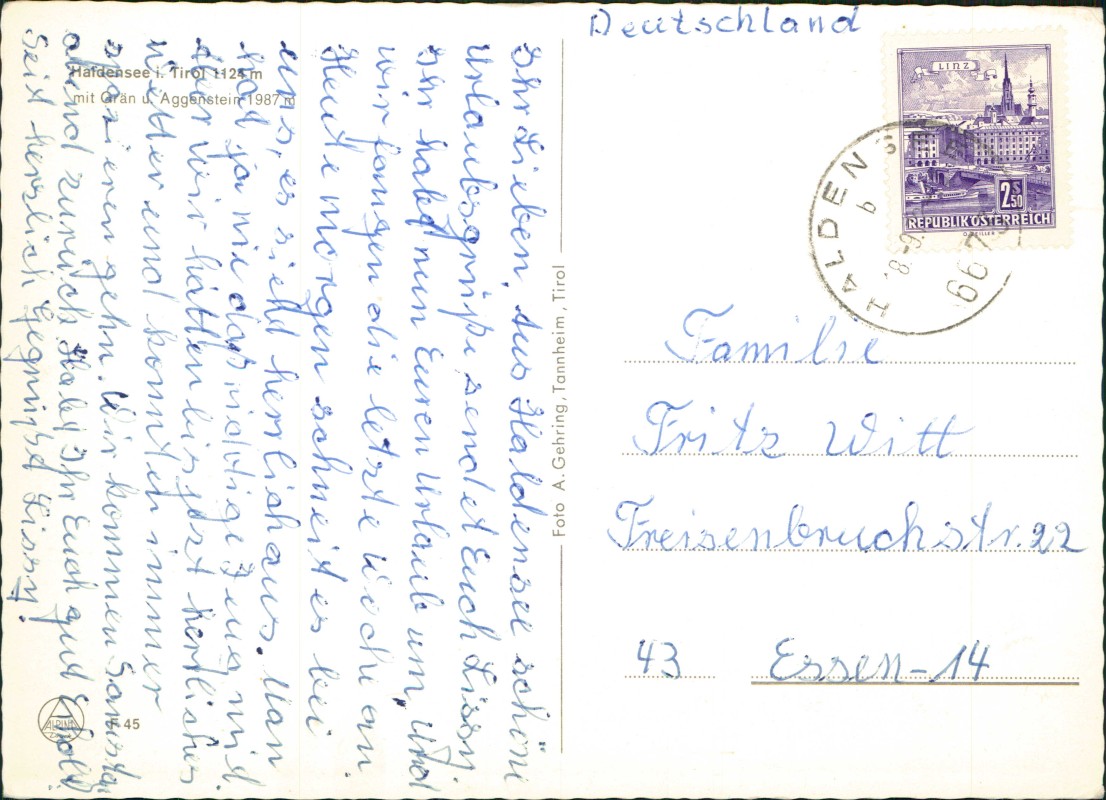 Haldensee i. Tirol 1124 m
mit Grän u. Aggenstein 1987 m
Ihr Lieben, Aus Haldensee schöne
Urlaubsgrüße, sendet Euch Lissy.
Ihr habt nun Euren Urlaub um, und
wir fangen die letzte Woche an
Heute morgen schneit es bei
uns, es sieht herrlich aus. Man
hat ja nie das richtige Zeug mit
Aber wir hatten bis jetzt herrliches
Wetter und konnten immer
spazieren gehn. Wir kommen Samstag
abend zurück. Habt Ihr Euch gut
Seit herzlich Gegrüßt Lissy.
ALPINA
F 45
Foto A. Gehring, Tannheim, Tirol
Deutschland
LINZ
2 S 50
REPUBLIK ÖSTERREICH
HALDENSEE
6673
Familie
Fritz Witt
Freisenbruchstr. 22
43 Essen-14